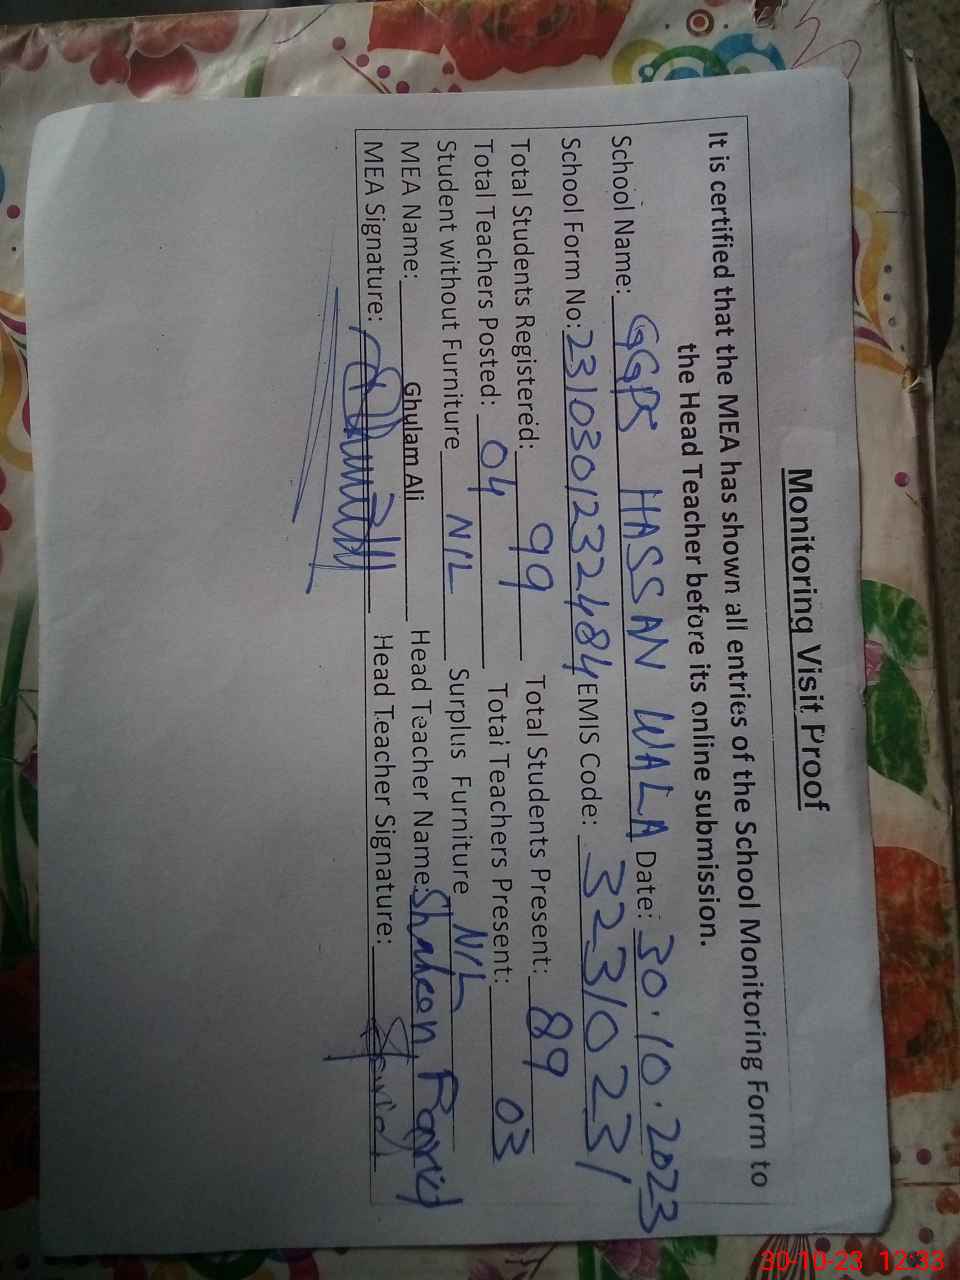 Monitoring Visit Proof
It is certified that the MEA has shown all entries of the School Monitoring Form to
the Head Teacher before its online submission.
School Name: GGPS HASSAN WALA Date: 30.10.2023
School Form No: 23103012324 84 EMIS Code: 32310231
Total Students Registered: 99 Total Students Present: 89
Total Teachers Posted: 04 Total Teachers Present: 03
Student without Furniture NIL Surplus Furniture NIL
MEA Name: Ghulam Ali Head Teacher Name: Shaheen
MEA Signature: Head Teacher Signature:
30-10-23 12:33